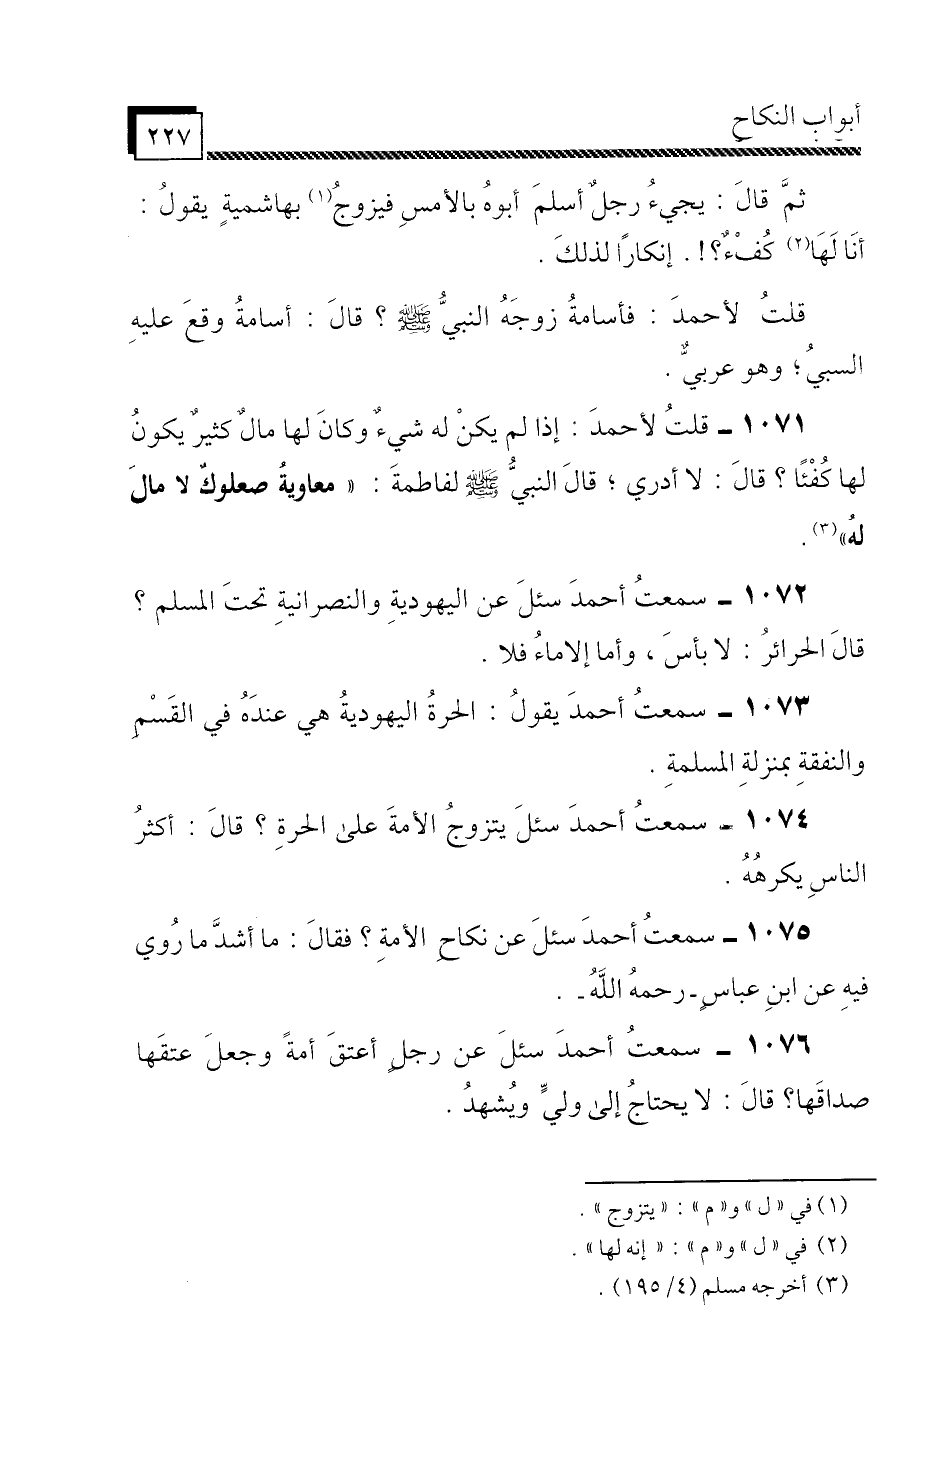 أبواب النكاحِ
٢٢٧
ثمَّ قالَ : يجيءُ رجلٌ أسلمَ أبوهُ بالأمسِ فيزوجُ(١) بهاشميةٍ يقولُ :
أنَا لَهَا(٢) كُفْءٌ؟! . إنكارًا لذلكَ .
قلتُ لأحمدَ : فأسامةُ زوجَهُ النبيُّ ﷺ ؟ قالَ : أسامةُ وقعَ عليهِ
السبيُ ؛ وهو عربيٌّ .
١٠٧١ ـ قلتُ لأحمدَ : إذا لم يكنْ له شيءٌ وكانَ لها مالٌ كثيرٌ يكونُ
لها كُفْئًا ؟ قالَ : لا أدري ؛ قالَ النبيُّ ﷺ لفاطمةَ : « معاويةُ صعلوكٌ لا مالَ
لهُ»(٣) .
١٠٧٢ ـ سمعتُ أحمدَ سئلَ عن اليهوديةِ والنصرانيةِ تحتَ المسلم ؟
قالَ الحرائرُ : لا بأسَ ، وأما إلاماءُ فلا .
١٠٧٣ ـ سمعتُ أحمدَ يقولُ : الحرةُ اليهوديةُ هي عندَهُ في القَسْمِ
والنفقةِ بمنزلةِ المسلمةِ .
١٠٧٤ ـ سمعتُ أحمدَ سئلَ يتزوجُ الأمةَ على الحرةِ ؟ قالَ : أكثرُ
الناسِ يكرهُهُ .
١٠٧٥ ـ سمعتُ أحمدَ سئلَ عن نكاحِ الأمةِ ؟ فقالَ : ما أشدَّ ما رُوي
فيهِ عن ابنِ عباسٍ ـ رحمهُ اللَّهُ ـ .
١٠٧٦ ـ سمعتُ أحمدَ سئلَ عن رجلٍ أعتقَ أمةً وجعلَ عتقَها
صداقَها؟ قالَ : لا يحتاجُ إلى وليٍّ ويُشهدُ .
(١) في « ل » و« م » : « يتزوج » .
(٢) في « ل » و« م » : « إنه لها » .
(٣) أخرجه مسلم (٤/ ١٩٥) .